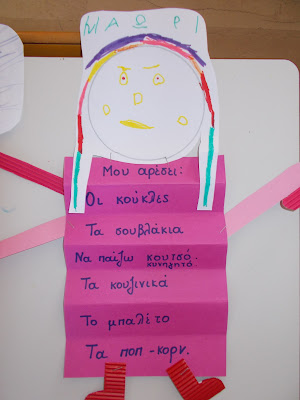 ΜΑΩΡΙ
Μου αρέσει:
Οι κούκλες
Τα σουβλάκια
Να παίζω κουτσό.
κυνηγητό
Τα κουζινικά
Το μπαλέτο
Τα ποπ-κορν.